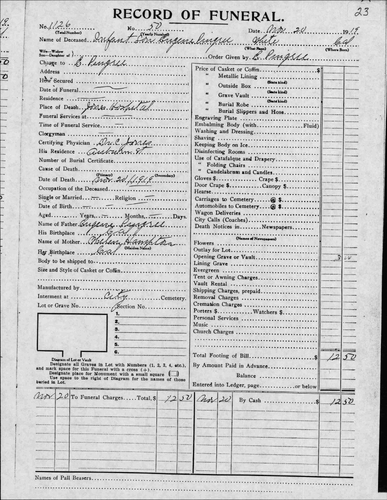 23
RECORD OF FUNERAL.
No. 1126 No. 59 Date, Nov. 20 1919
(Total Number) (Yearly Number)
Name of Deceased Infant Son Eugene Pengree White
Charge to E. Pengree Order Given by E. Pengree
Address
How Secured
Date of Funeral
Residence
Place of Death Hospital
Funeral Services at
Time of Funeral Service
Clergyman
Certifying Physician Dr. Jones
His Residence
Number of Burial Certificate
Cause of Death
Date of Death Nov. 20 1919
Occupation of the Deceased
Single or Married Religion
Aged Years Months Days
Name of Father Eugene Pengree
His Birthplace
Name of Mother Helen Hampton
Her Birthplace
Body to be shipped to
Size and Style of Casket or Coffin
Manufactured by
Interment at City Cemetery.
Lot or Grave No. Section No.
1
2.
3.
4.
5.
6.
Diagram of Lot or Vault
Designate all Graves in Lot with Numbers (1, 2, 3, 4, etc.) and mark space for this Funeral with a cross (x).
Designate place for Monument with a small square
Use space to the right of Diagram for the names of those buried in Lot.
Price of Casket or Coffin
" Metallic Lining
(State kind)
" Outside Box
(State kind)
" Grave Vault
(State kind)
" Burial Robe
(State kind)
" Burial Slippers and Hose
Engraving Plate
Embalming Body (with Fluid)
Washing and Dressing
Shaving
Keeping Body on Ice
Disinfecting Rooms
Use of Catafalque and Drapery
" Folding Chairs
" Candelabrum and Candles
Gloves $ Crape $
Door Crape $ Canopy $
Hearse
Carriages to Cemetery @ $
Automobiles to Cemetery @ $
Wagon Deliveries
City Calls (Coaches)
Death Notices in
(Names of Newspapers)
Flowers
Outlay for Lot
Opening Grave or Vault
Lining Grave
Evergreen
Tent or Awning Charges
Vault Rental
Shipping Charges, prepaid
Removal Charges
Cremation Charges
Porters $ Watchers $
Personal Services
Music
Church Charges
Total Footing of Bill $ 12 50
By Amount Paid in Advance
Balance
Entered into Ledger, page or below.
Nov 20 To Funeral Charges, Total, $ 12 50 Nov 20 By Cash $ 12 50
Names of Pall Bearers